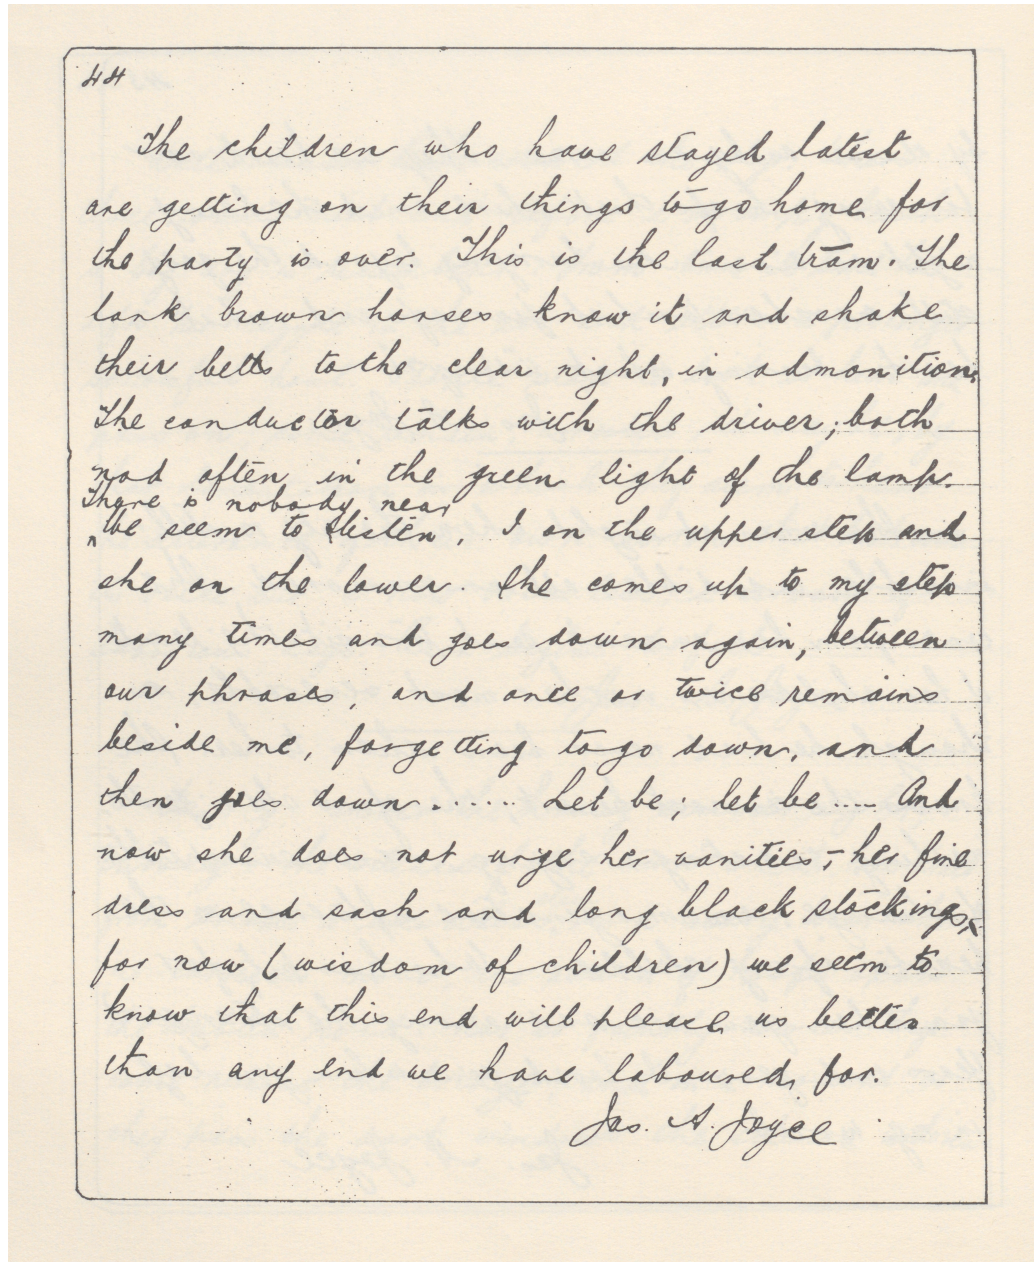 44
The children who have stayed latest
are getting on their things to go home for
the party is over. This is the last tram. The
lank brown horses know it and shake
their bells to the clear night, in admonition.
The conductor talks with the driver; both
nod often in the green light of the lamp.
There is nobody near
We seem to listen, I on the upper step and
she on the lower. She comes up to my step
many times and goes down again, between
our phrases, and once or twice remains
beside me, forgetting to go down, and
then goes down ...... Let be; let be .... And
now she does not urge her vanities, - her fine
dress and sash and long black stockings, -
for now (wisdom of children) we seem to
know that this end will please us better
than any end we have laboured for.
Jas. A. Joyce